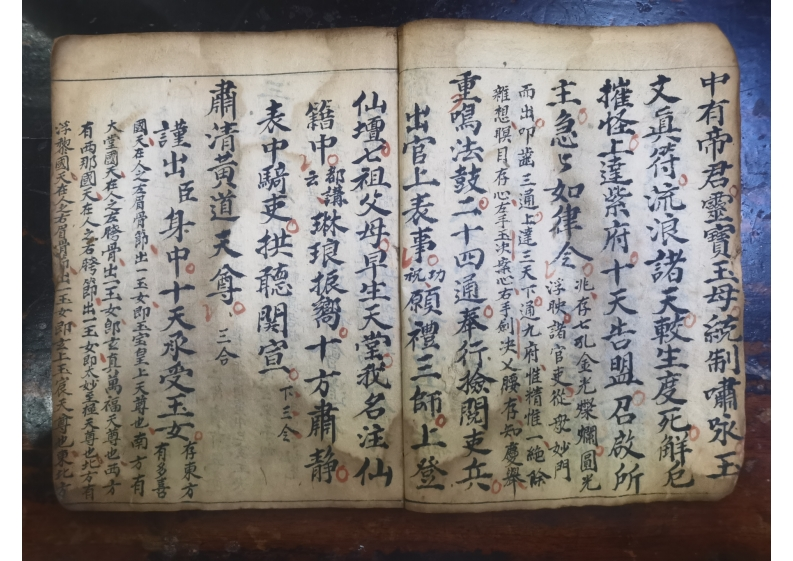 中有帝君靈寶玉母統制嘯咏玉
文真符流浪諸天較生度死解厄
摧怪上達紫府十天告盟召啟所
主急々如律令 兆存七孔金光燦爛圓光
浮映諸官吏從 妙門
而出叩齒三通上達三天下通九府惟精惟一絕餘
雜想瞑目存心左手玉決案心右手劍決义腰存知慶舉
重鳴法鼓二十四通奉行撿閱吏兵
出官上表事 功祝 願禮三師上登
仙壇七祖父母早生天堂我名注仙
籍中 都講云 琳琅振響十方肅静
表中騎吏拱聽関宣 下三仝
肅清黃道天尊 三合
謹出臣身中十天承受玉女 存東方有多喜
國天在人之左肩骨節出一玉女即玉宝皇上天尊也南方有
大堂國天在人之左胯骨出一玉女即玄真萬福天尊也西方
有西那國天在人之右胯節出一玉女即太妙至極天尊也北方有
浮黎國天在人之右肩骨節出一玉女即玄上玉宸天尊也東北方